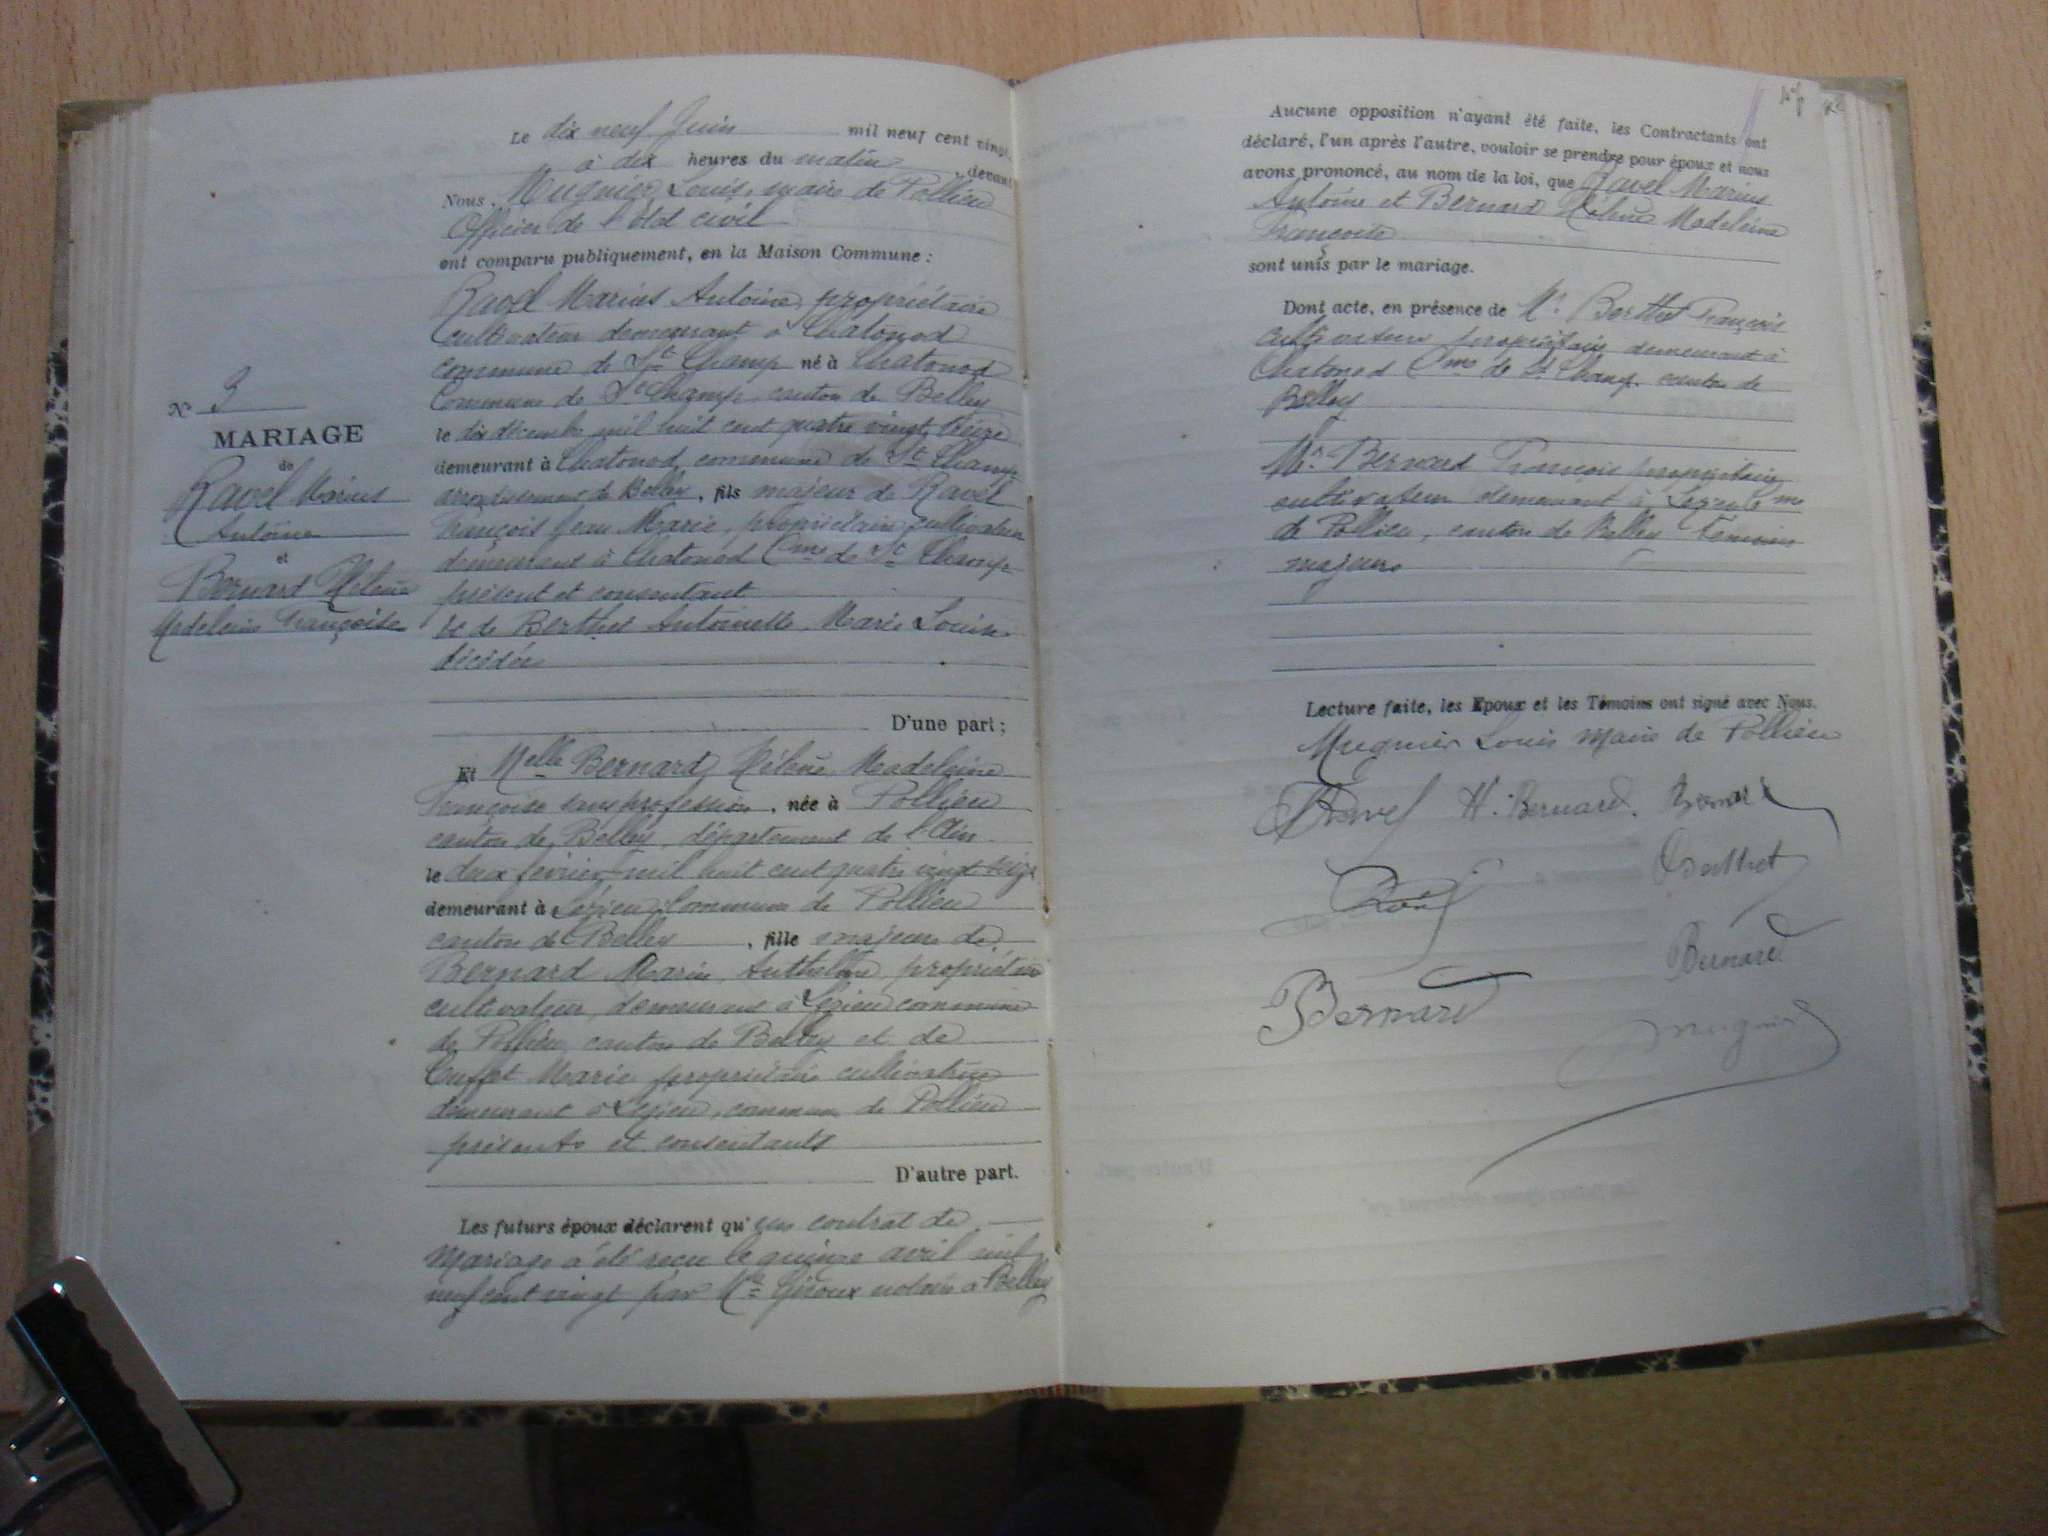 N° 3
MARIAGE
de
Ravel Marius
Antoine
et
Bernard Hélène
Madeleine Françoise
Le dix neuf Juin mil neuf cent vingt
à dix heures du matin, devant
Nous, Mugnier Louis, maire de Pollieu
Officier de l'état civil
ont comparu publiquement, en la Maison Commune :
Ravel Marius Antoine, propriétaire
cultivateur demeurant à Chatonod
commune de St Champ né à Chatonod
Commune de St Champ, canton de Belley
le dix décembre mil huit cent quatre vingt treize
demeurant à Chatonod commune de St Champ
arrondissement de Belley, fils majeur de Ravel
François Jean Marie, propriétaire cultivateur
demeurant à Chatonod Cme de St Champ
présent et consentant
et de Berthet Antoinette Marie Louise
décédée
D'une part ;
Et Melle Bernard Hélène Madeleine
Françoise sans profession, née à Pollieu
canton de Belley, département de l'Ain
le deux février mil huit cent quatre vingt seize
demeurant à Lezieu Commune de Pollieu
canton de Belley, fille majeure de
Bernard Marin Anthelme, propriétaire
cultivateur, demeurant à Lezieu commune
de Pollieu canton de Belley et de
Marie propriétaire cultivatrice
demeurant à Lezieu, commune de Pollieu
présents et consentants
D'autre part.
Les futurs époux déclarent qu'un contrat de
Mariage a été reçu le quinze avril mil
neuf cent vingt par Me Giroux notaire à Belley
Aucune opposition n'ayant été faite, les Contractants ont
déclaré, l'un après l'autre, vouloir se prendre pour époux et nous
avons prononcé, au nom de la loi, que Ravel Marius
Antoine et Bernard Hélène Madeleine
Françoise
sont unis par le mariage.
Dont acte, en présence de Mr Berthet François
cultivateur propriétaire demeurant à
Chatonod Cme de St Champ canton de
Belley
Mr Bernard François propriétaire
cultivateur demeurant à Cme
de Pollieu, canton de Belley Témoins
majeurs
Lecture faite, les Epoux et les Témoins ont signé avec Nous.
Mugnier Louis Maire de Pollieu
Ravel H. Bernard. Bernard
Berthet
Ravel
Bernard
Bernard
Mugnier